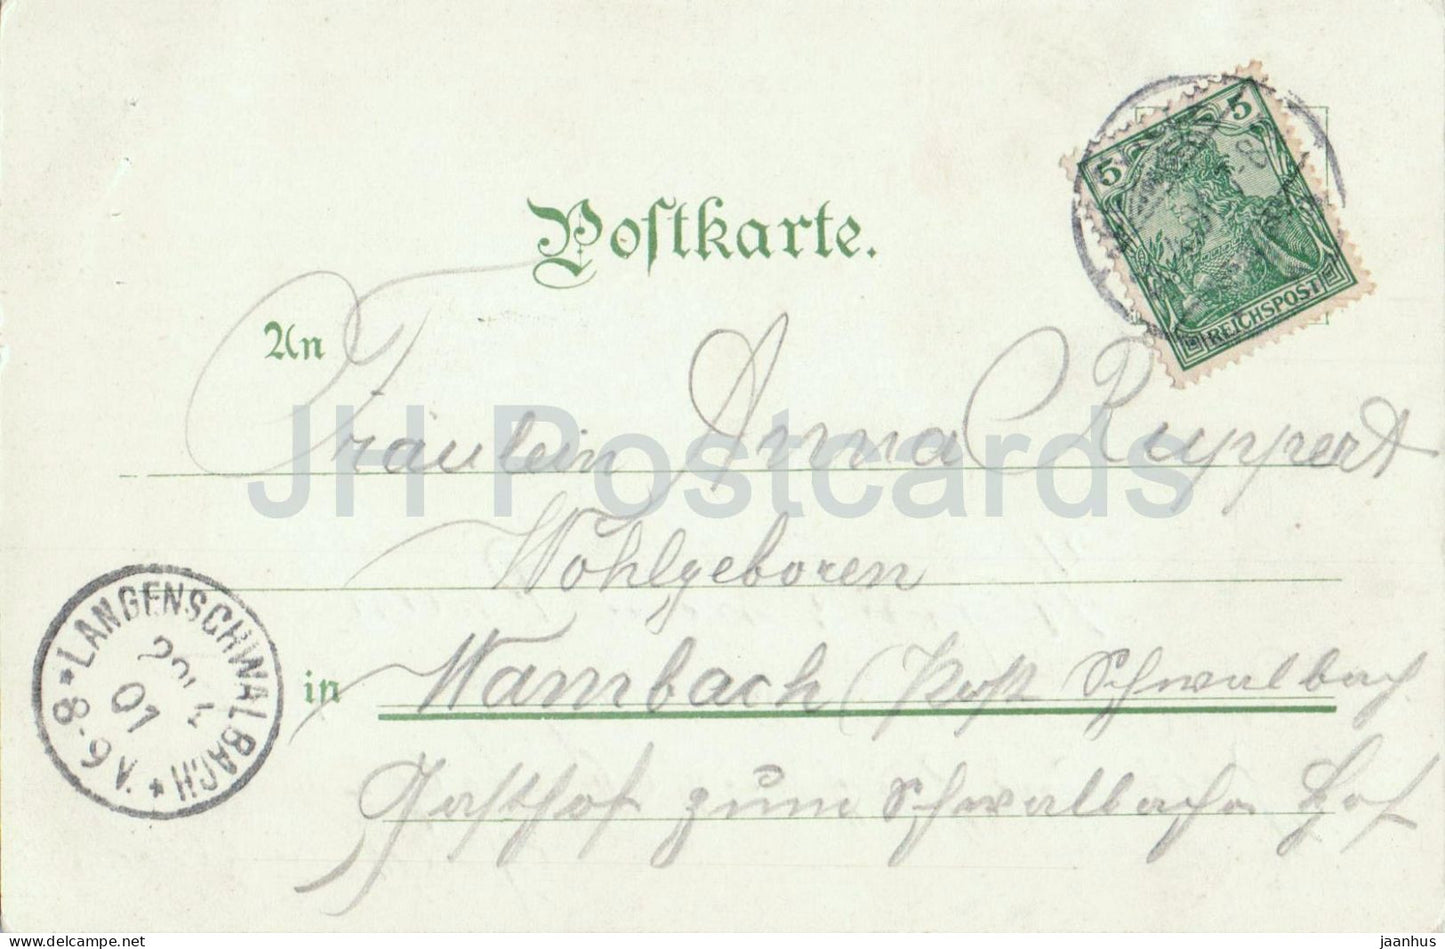 Postkarte.
5 5
REICHSPOST
An
Fräulein Anna Ruppert
JH Postcards
Wohlgeboren
in Wambach (Post Schwalbach
Gasthof zum Schwalbacher Hof
*LANGENSCHWALBACH*
01
6-8
jaanhus
www.delcampe.net